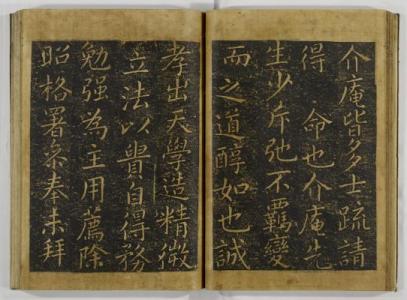 介庵皆多士疏請
得 命也介庵先
生少斥弛不羈變
而之道醇如也誠
孝出天學造精微
立法以貴自得務
勉强為主用薦除
昭格署叅奉未拜